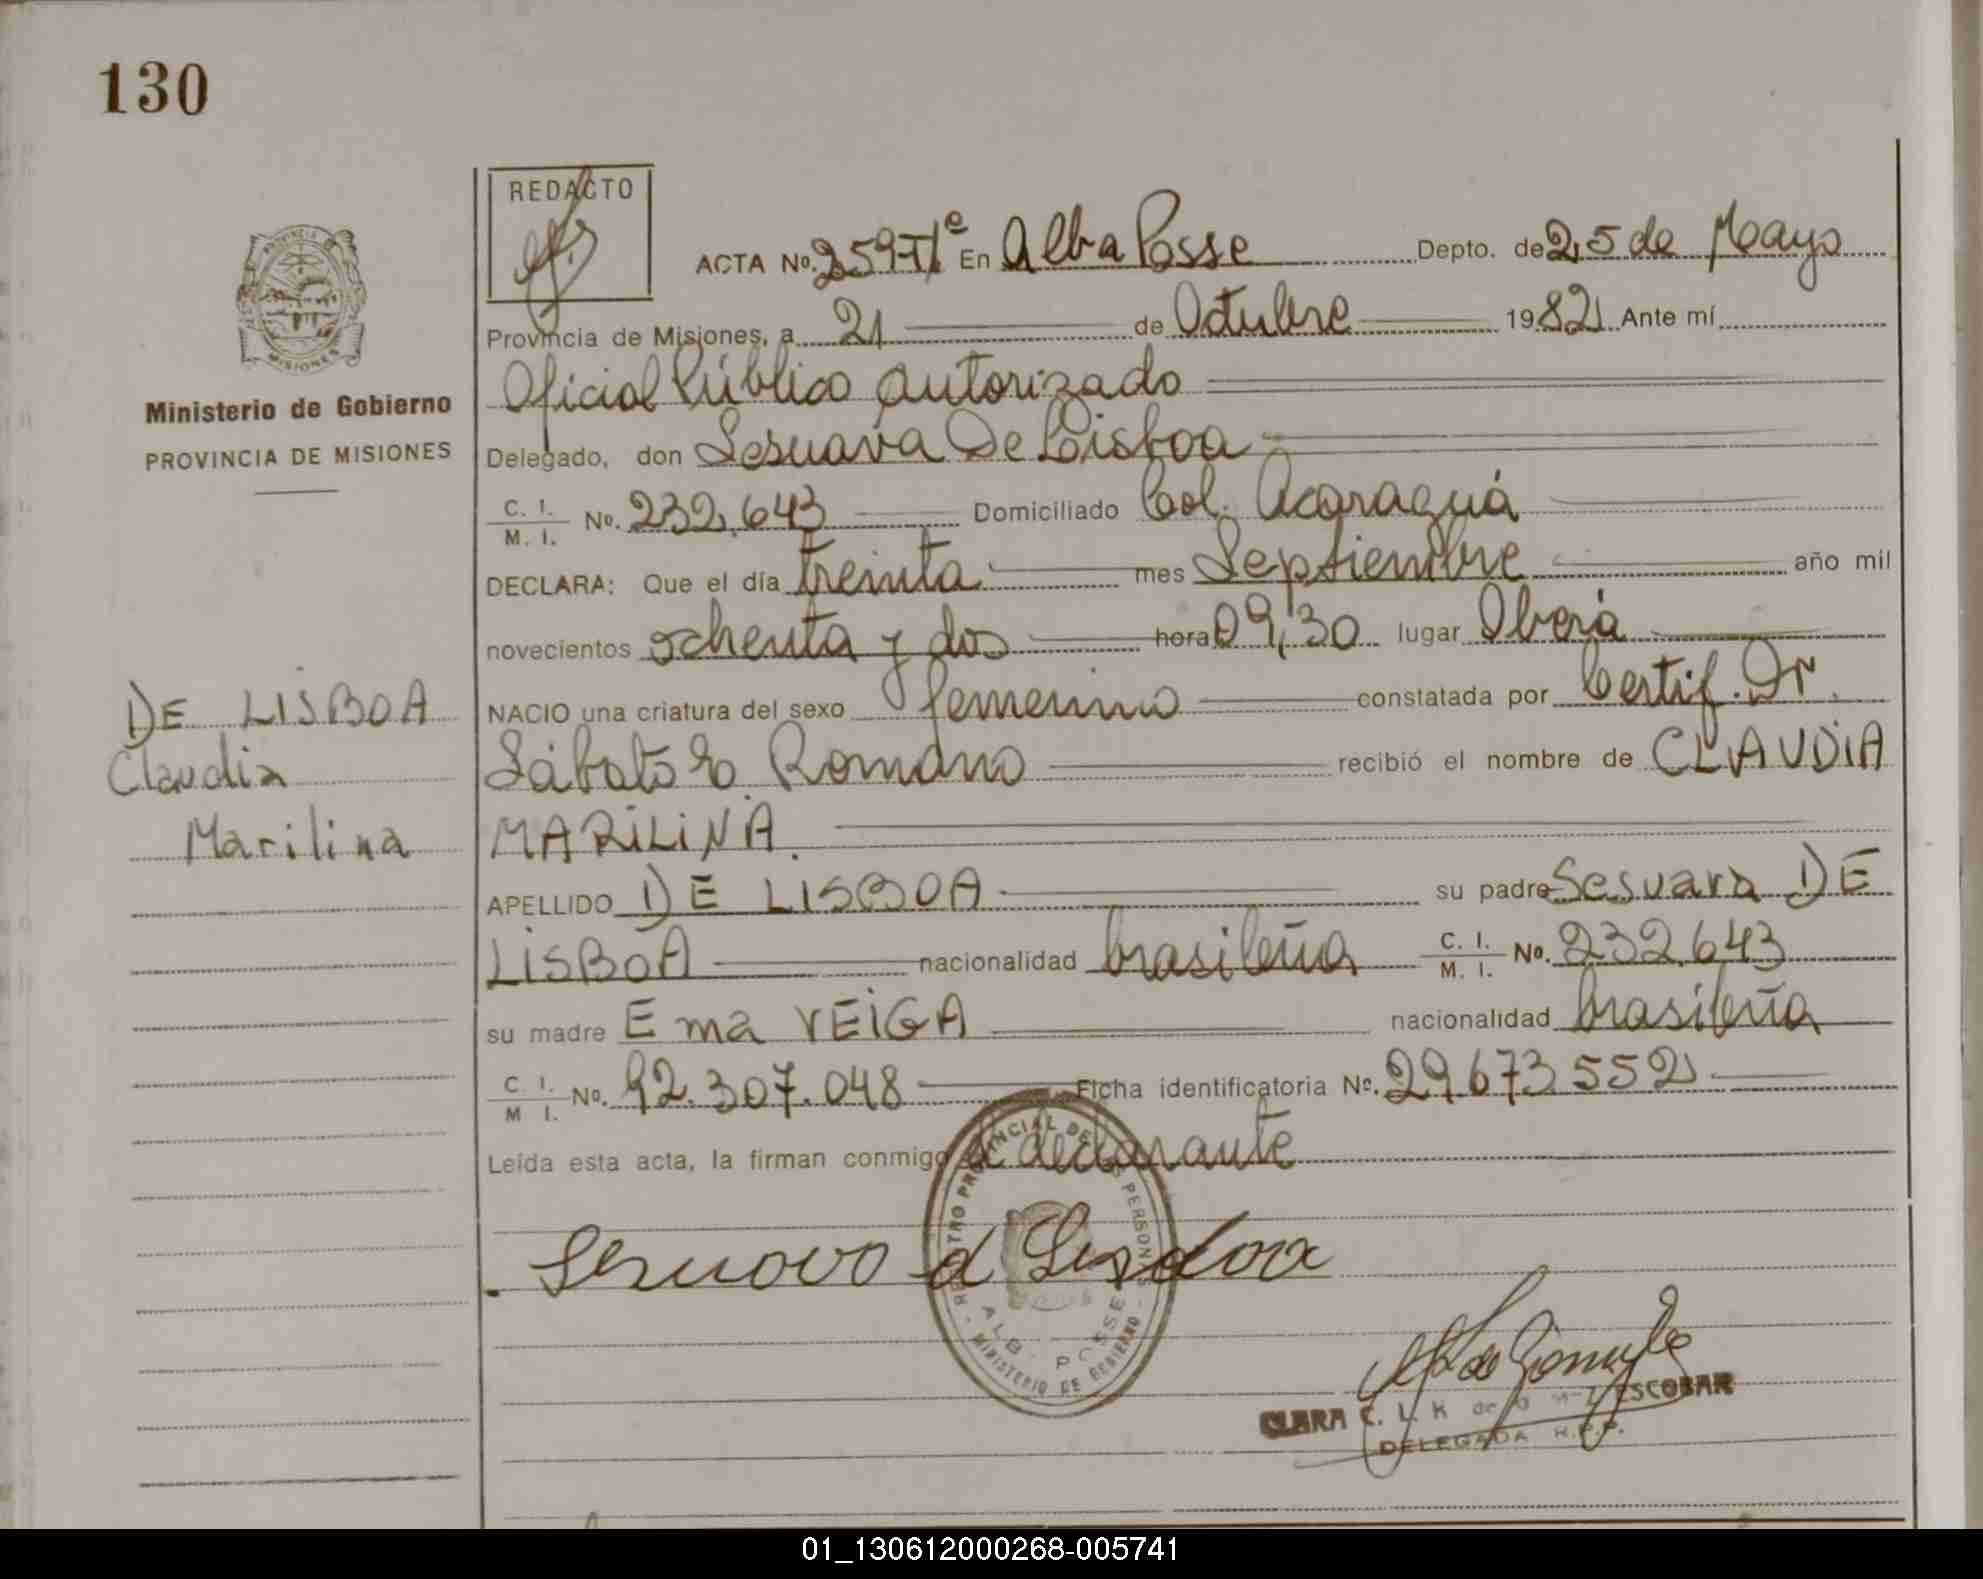 130
REDACTO
ACTA Nº. 259-Tº 1º En Alba Posse Depto. de 25 de Mayo
Provincia de Misiones, a 21 de Octubre 1982 Ante mí
Oficial Público autorizado
Delegado, don Sesuava De Lisboa
C. I. M. I. Nº. 232.643 Domiciliado Col. Acaraguá
DECLARA: Que el día treinta mes Septiembre año mil
novecientos ochenta y dos hora 09,30 lugar Oberá
NACIO una criatura del sexo femenino constatada por Certif. Dr.
Sábato Romano recibió el nombre de CLAUDIA
MARILINA.
APELLIDO DE LISBOA su padre Sesuava DE
LISBOA nacionalidad brasileña C. I. M. I. Nº. 232.643
su madre Ema VEIGA nacionalidad brasileña
C. I. M I. Nº. 92.307.048 Ficha identificatoria Nº. 29673552
Leída esta acta, la firman conmigo el declarante
Ministerio de Gobierno
PROVINCIA DE MISIONES
DE LISBOA
Claudia
Marilina
PROVINCIA DE
MISIONES
MINISTERIO DE GOBIERNO
CLARA C. L. K de ESCOBAR
DELEGADA R.P.P.
01_130612000268-005741